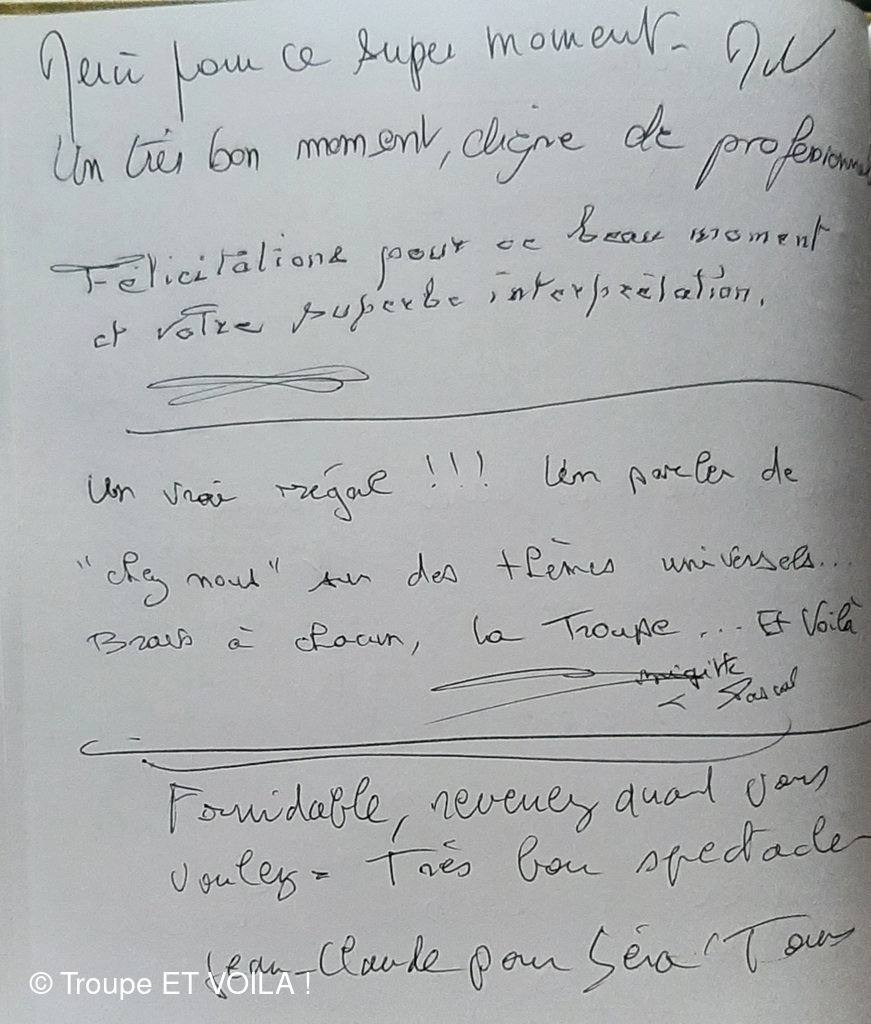 Merci pour ce super moment.
Un très bon moment, digne de professionnel
Félicitations pour ce beau moment
et votre superbe interprétation.
Un vrai régal !!! Un parler de
"chez nous" sur des thèmes universels...
Bravo à chacun, la Troupe ... Et Voilà
Pascal
Formidable, revenez quand vous
voulez = Très bon spectacle
Jean-Claude pour Séra'Tous
© Troupe ET VOILA !